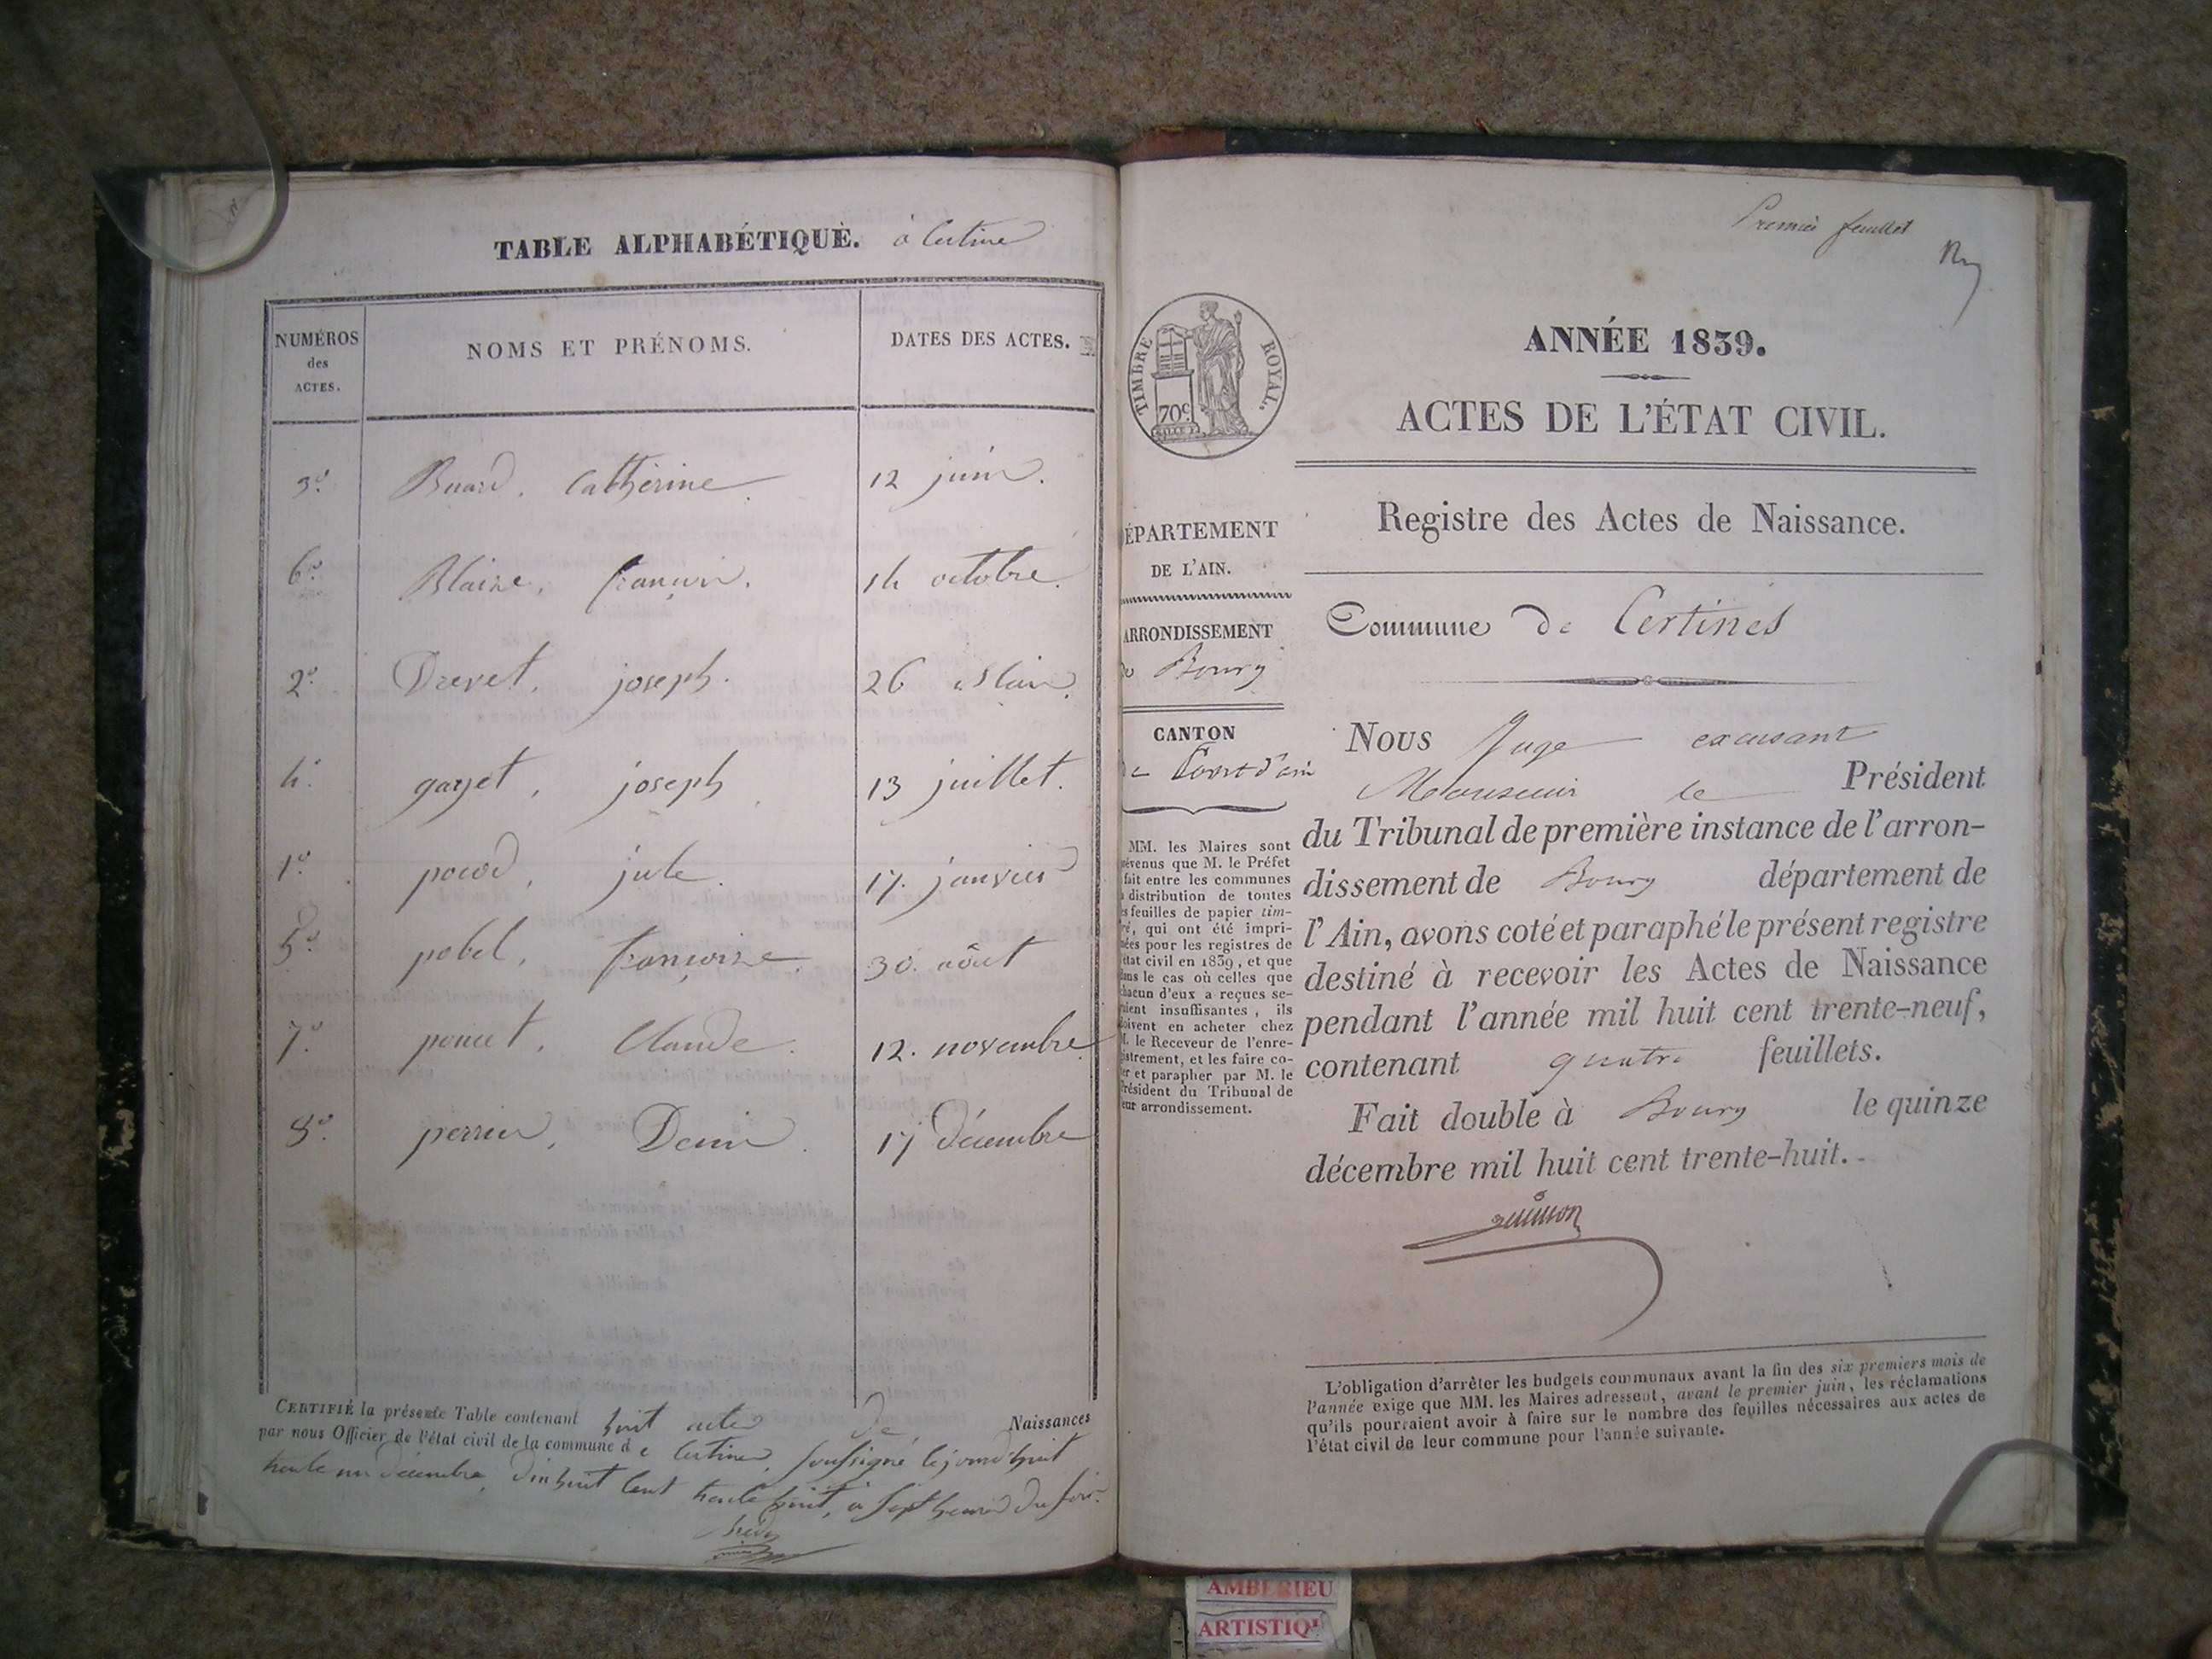 TABLE ALPHABÉTIQUE. à Certine
NUMÉROS des ACTES. NOMS ET PRÉNOMS. DATES DES ACTES.
3e. Buard, Cathérine 12 juin.
6e. Blaize, françois. 14 octobre.
2e. Drevet, joseph. 26 Mars.
4e. gayet, joseph 13 juillet.
1e. pocod, jule. 17. janvier
5e. pobel, françoise, 30. aôut
7e. poncet, Claude. 12. novembre
8e. perrier, Denis. 17 décembre
CERTIFIÉ la présente Table contenant huit actes de Naissances
par nous Officier de l'état civil de la commune de Certines, soussigné cejourd'huit
trente un décembre, dix huit cent trente huit, à sept heures du soir.
Premier feuillet
TIMBRE ROYAL.
70c
ANNÉE 1839.
ACTES DE L'ÉTAT CIVIL.
Registre des Actes de Naissance.
ÉPARTEMENT
DE L'AIN.
ARRONDISSEMENT
de Bourg
CANTON
de Pont-d'ain
MM. les Maires sont
révenus que M. le Préfet
fait entre les communes
a distribution de toutes
es feuilles de papier tim-
ré, qui ont été impri-
mées pour les registres de
état civil en 1839, et que
dans le cas où celles que
chacun d'eux a reçues se-
raient insuffisantes, ils
doivent en acheter chez
M. le Receveur de l'enre-
gistrement, et les faire co-
ter et parapher par M. le
Président du Tribunal de
leur arrondissement.
Commune de Certines
Nous Juge excusant
Monsieur le Président
du Tribunal de première instance de l'arron-
dissement de Bourg département de
l'Ain, avons coté et paraphé le présent registre
destiné à recevoir les Actes de Naissance
pendant l'année mil huit cent trente-neuf,
contenant quatre feuillets.
Fait double à Bourg le quinze
décembre mil huit cent trente-huit.
L'obligation d'arrêter les budgets communaux avant la fin des six premiers mois de
l'année exige que MM. les Maires adressent, avant le premier juin, les réclamations
qu'ils pourraient avoir à faire sur le nombre des feuilles nécessaires aux actes de
l'état civil de leur commune pour l'année suivante.
AMBERIEU
ARTISTIQ